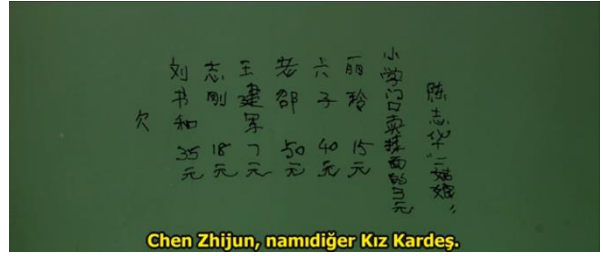 陈志华“二姑娘”
小学门口卖面的元
丽玲 15元
六子 40元
老邵 50元
王建军 7元
志刚 18元
刘书和 35元
欠
Chen Zhijun, namıdiğer Kız Kardeş.